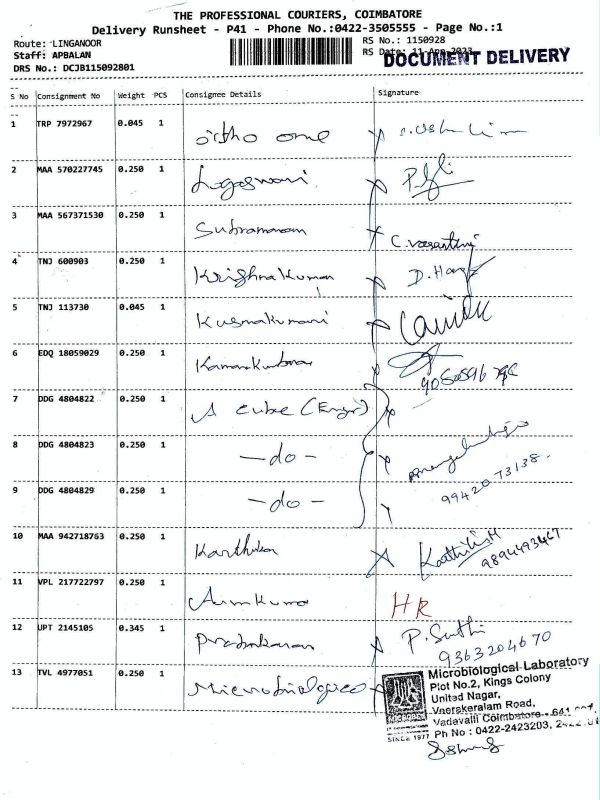 THE PROFESSIONAL COURIERS, COIMBATORE
Delivery Runsheet - P41 - Phone No.:0422-3505555 - Page No.:1
Route: LINGANOOR
RS No.: 1150928
Staff: APBALAN
RS Date: 11-Apr-2023
DOCUMENT DELIVERY
DRS No.: DCJB115092801
S No Consignment No Weight PCS Consignee Details Signature
1 TRP 7972967 0.045 1 ortho one
2 MAA 570227745 0.250 1 Logaswari
3 MAA 567371530 0.250 1 Subramaniam C. Vasanthi
4 TNJ 600903 0.250 1 Krishnakumar
5 TNJ 113730 0.045 1
6 EDQ 18059029 0.250 1
7 DDG 4804822 0.250 1 A cube (Engr)
8 DDG 4804823 0.250 1 -do-
9 DDG 4804829 0.250 1 -do-
99420 73138.
10 MAA 942718763 0.250 1 Karthika
9894493467
11 VPL 217722797 0.250 1 Arunkumar HR
12 UPT 2145105 0.345 1 Prabakaran
9363204670
13 TVL 4977051 0.250 1
Microbiological Laboratory
Plot No.2, Kings Colony
United Nagar,
Veerakeralam Road,
Vadavalli Coimbatore - 641
SINCE 1977 Ph No : 0422-2423203,